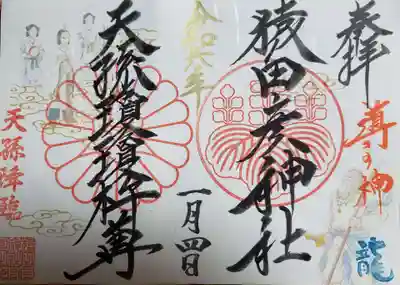 奉拝
導きの神
龍
猿田彦神社
令和六年
一月四日
天孫瓊瓊杵尊
天孫降臨